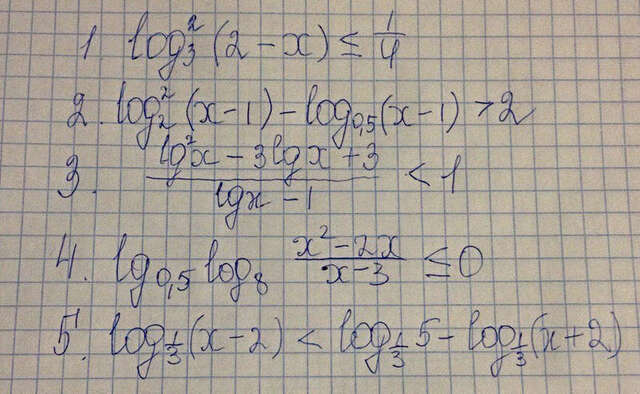 1 log₃²(2-x) ≤ 1/4
2. log₂²(x-1) - log₀,₅(x-1) > 2
3. (lg²x - 3lgx + 3)/(lgx - 1) < 1
4. lg₀,₅ log₈ (x² - 2x)/(x - 3) ≤ 0
5. log_{1/3}(x-2) < log_{1/3}5 - log_{1/3}(x+2)